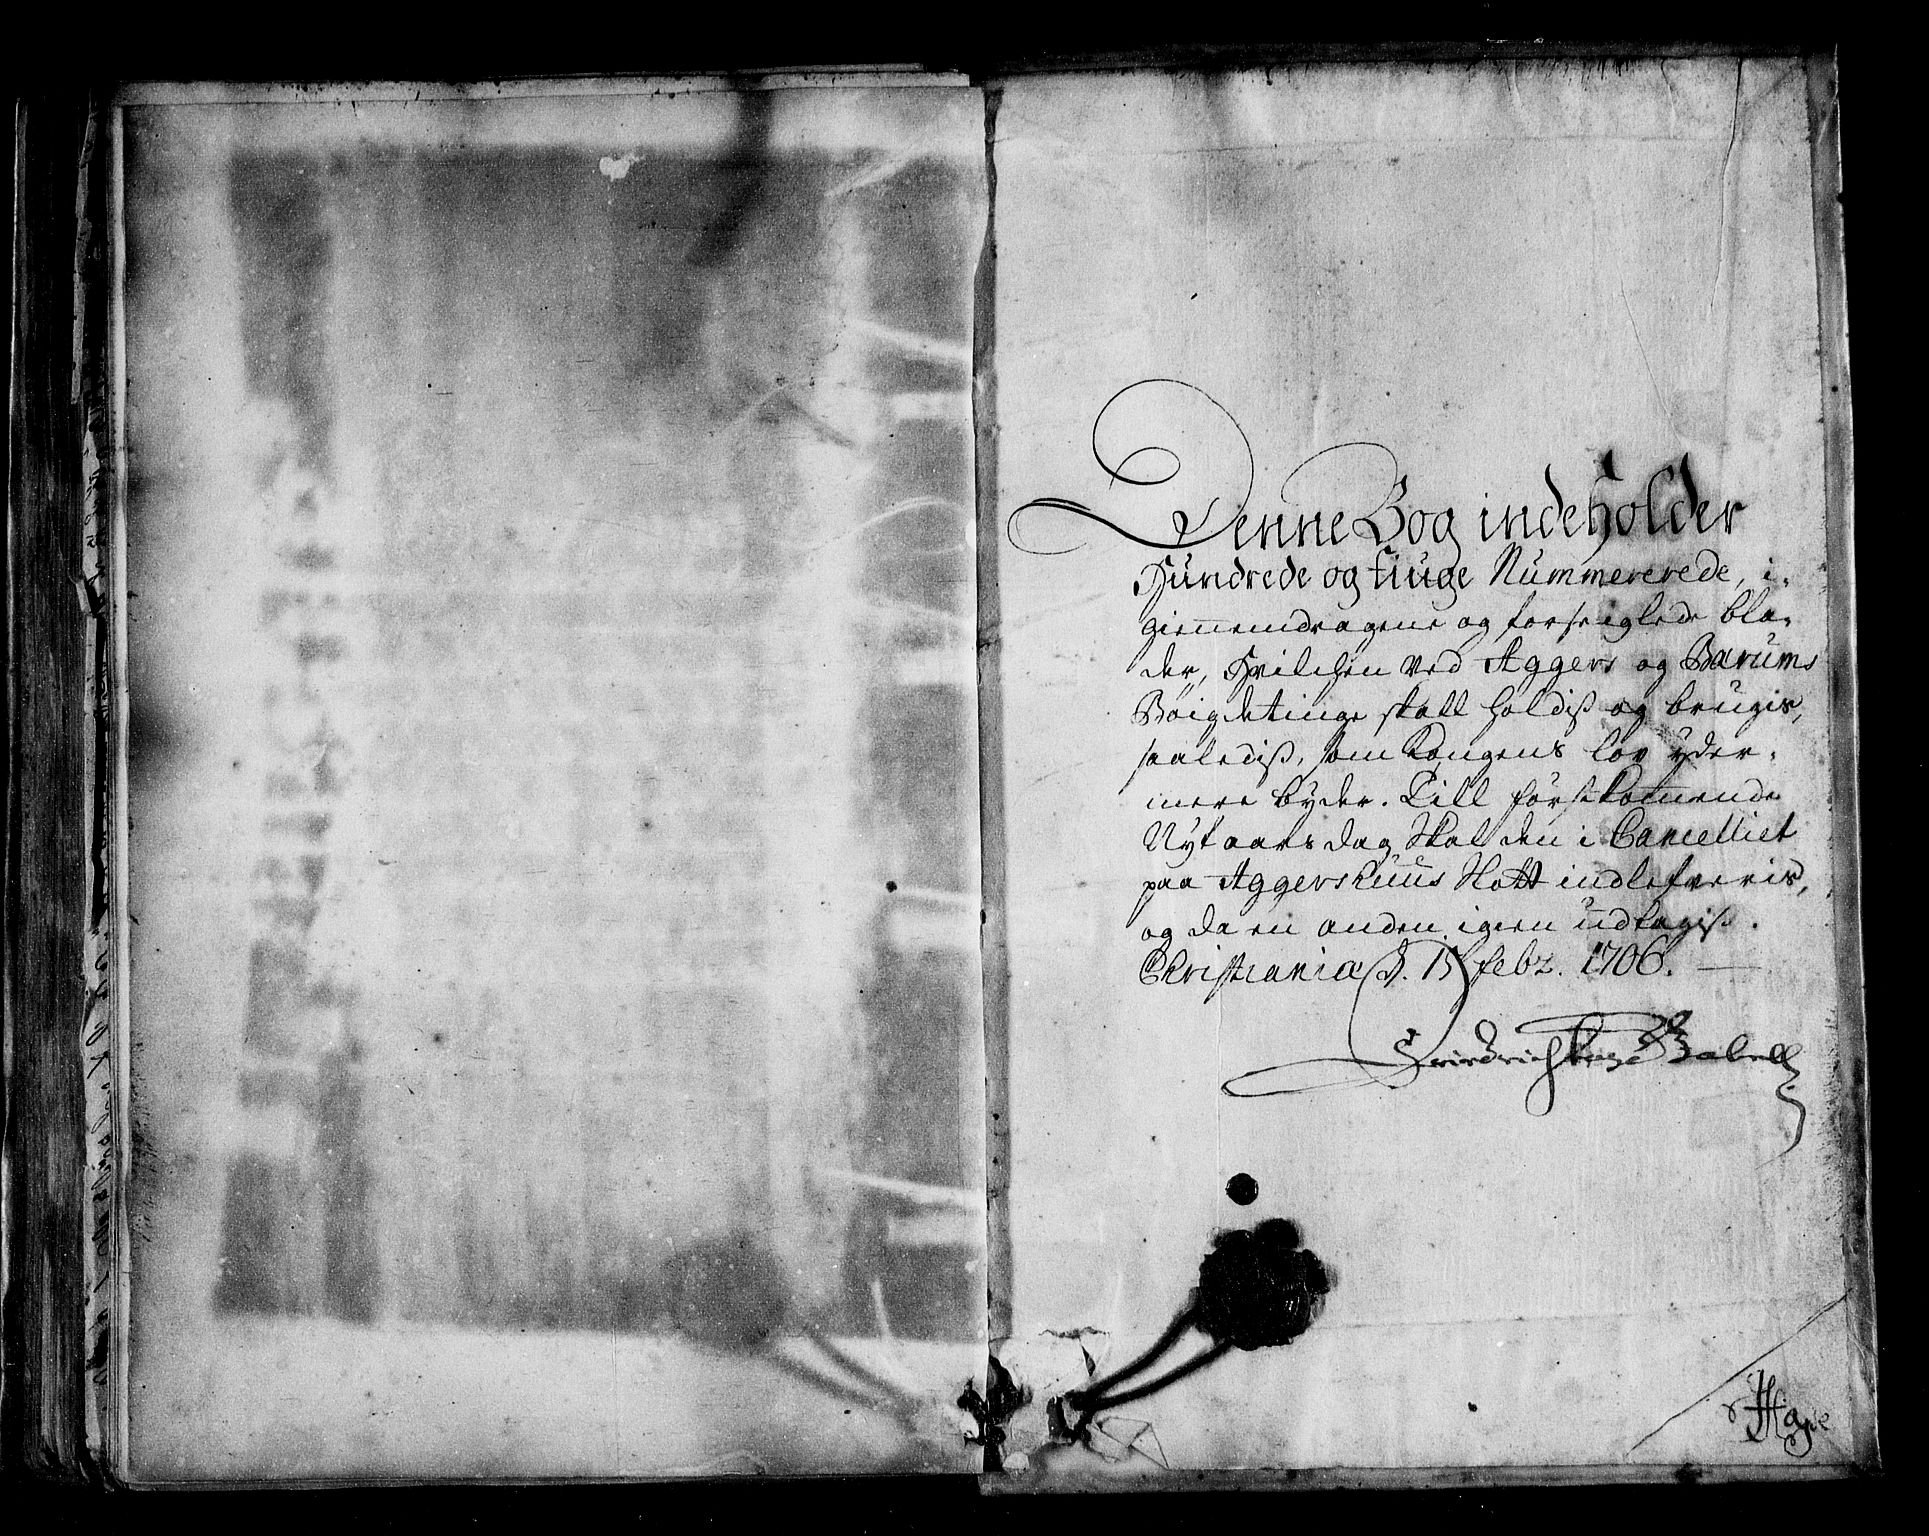 Denne Bog indeholder
Hundrede og tiuge Nummererede, i-
giennemdragene og forseiglede bla-
der, Hvilchen ved Aggers og Bærums
Bøigdetinge skall holdis og brugis,
saaledis, som Kongens lov yder-
mere byder. Till førstkommende
Nyt aars dag skal den i Cancelliet
paa Aggershuus Slott indlefveris,
og da en anden igien udtagis.
Christiania d. 15 febr. 1706.
Friedrich Gabell